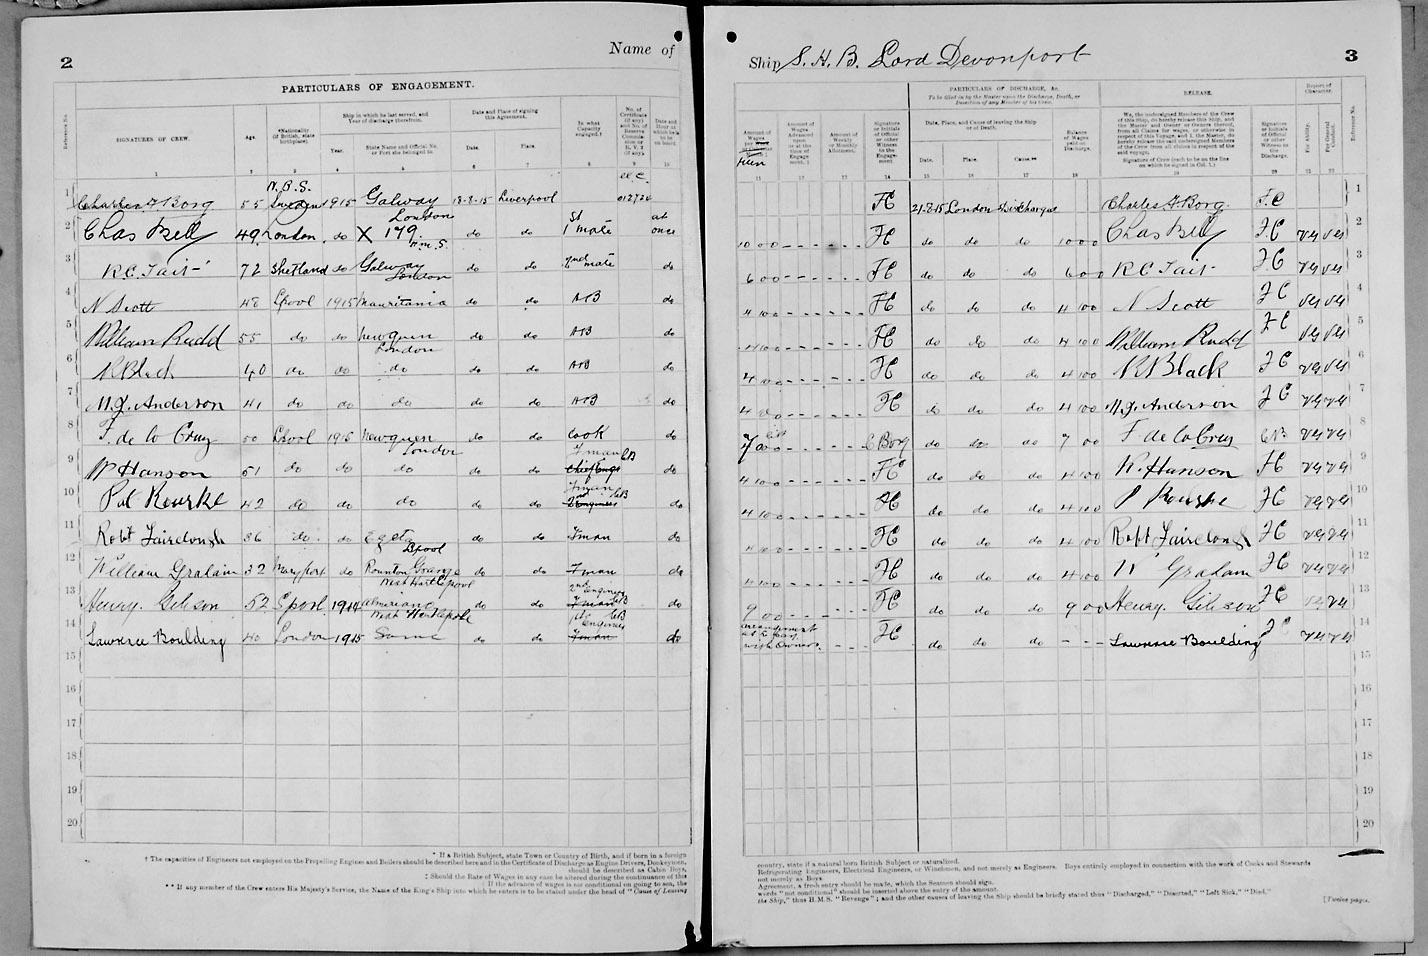 2
Name of
PARTICULARS OF ENGAGEMENT.
Reference No.
SIGNATURES OF CREW.
Age.
*Nationality (if British, state birthplace).
Ship in which he last served, and Year of discharge therefrom.
Year.
State Name and Official No. or Port she belonged to.
Date and Place of signing this Agreement.
Date.
Place.
In what Capacity engaged.†
1 2 3 4 5 6 7 8 9 10
1 Charles F Borg 55 N.B.S. Sweden 1915 Galway London 18-8-15 Liverpool 012724
2 Chas Bell 49 London do X 179. do do 1st mate at once
3 R C Tait 72 Shetland do Galway London do do 2nd mate do
4 N Scott 48 Lpool 1915 Mauritania do do AB do
5 William Rudd 55 do do Newquin London do do AB do
6 R Black 40 do do do do do AB do
7 M.J. Anderson 41 do do do do do AB do
8 F. de la Cruz 50 Lpool 1915 Newquen London do do Cook do
9 Hanson 51 do do do do do Fman CB Chief Engr do
10 Pat Rourke 42 do do do do do Fman CB 2nd Engineer do
11 Robt Fairclough 36 do do Lpool do do Fman do
12 William Graham 32 Maryport do Rounton Grange West Hartlepool do do Fman do
13 Henry Gibson 52 Lpool 1914 Almeriana West Hartlepool do do 2nd Engineer Fman CB do
14 Lawrence Boulding 40 London 1915 Same do do 1st Engineer CB Fman do
15
16
17
18
19
20
* If a British Subject, state Town or Country of Birth, and if born in a foreign
† The capacities of Engineers not employed on the Propelling Engines and Boilers should be described here and in the Certificate of Discharge as Engine Drivers, Donkeymen,
should be described as Cabin Boys,
‡ Should the Rate of Wages in any case be altered during the continuance of this
If the advance of wages is not conditional on going to sea, the
** If any member of the Crew enters His Majesty's Service, the Name of the King's Ship into which he enters is to be stated under the head of "Cause of Leaving
Ship S. H. B. Lord Devonport
3
PARTICULARS OF DISCHARGE, &c.
To be filled in by the Master upon the Discharge, Death, or Desertion of any Member of his Crew.
RELEASE.
Report of Character.
Amount of Wages
Run
Amount of Wages Advanced upon or at the time of Engagement.
Amount of Weekly or Monthly Allotment.
Signature or Initials of Official or other Witness to the Engagement
Date, Place, and Cause of leaving the Ship or of Death.
Date.
Place.
Cause.**
Balance of Wages paid on Discharge.
We, the undersigned Members of the Crew of this Ship, do hereby release this Ship, and the Master and Owner or Owners thereof, from all Claims for wages, or otherwise in respect of this Voyage, and I, the Master, do hereby release the said undersigned Members of the Crew from all claims in respect of the said voyage.
Signature of Crew (each to be on the line on which he signed in Col. 1.)
Signature or Initials of Official or other Witness to the Discharge.
For Ability.
For General Conduct.
Reference No.
FC 21-8-15 London Discharged Charles F. Borg. FC 1
10 0 0 FC do do do 10 0 0 Chas Bell FC VG VG 2
6 0 0 FC do do do 6 0 0 R C Tait FC VG VG 3
4 10 0 FC do do do 4 10 0 N Scott FC VG VG 4
4 10 0 FC do do do 4 10 0 William Rudd FC VG VG 5
4 10 0 FC do do do 4 10 0 R Black FC VG VG 6
4 10 0 FC do do do 4 10 0 M.J. Anderson FC VG VG 7
7 0 0 C Borg do do do 7 0 0 F. de la Cruz CB VG VG 8
4 10 0 FC do do do 4 10 0 Hanson FC VG VG 9
4 10 0 FC do do do 4 10 0 P Rourke FC VG VG 10
4 10 0 FC do do do 4 10 0 Robt Fairclough FC VG VG 11
4 10 0 FC do do do 4 10 0 W Graham FC VG VG 12
9 0 0 FC do do do 9 0 0 Henry Gibson FC VG VG 13
arrangement as to pay with Owners. FC do do do - - - Lawrence Boulding FC VG VG 14
15
16
17
18
19
20
country, state if a natural born British Subject or naturalized.
Refrigerating Engineers, Electrical Engineers, or Winchmen, and not merely as Engineers. Boys entirely employed in connection with the work of Cooks and Stewards
not merely as Boys.
Agreement, a fresh entry should be made, which the Seamen should sign.
words "not conditional" should be inserted above the entry of the amount.
the Ship," thus H.M.S. "Revenge"; and the other causes of leaving the Ship should be briefly stated thus "Discharged," "Deserted," "Left Sick," "Died."
[Twelve pages.